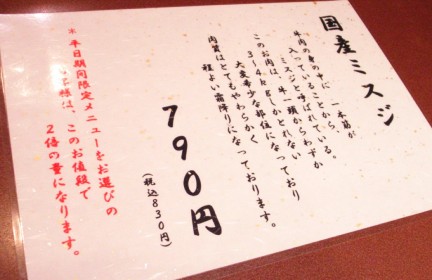 国産ミスジ
牛肉の身の中に、一本筋が
入っていることから、
ミスジと呼ばれている。
このお肉は、牛一頭からわずか
3～4kgしかとれない
大変希少な部位になっており
肉質はとてもやわらかく
程よい霜降りになっております。
790円
(税込830円)
※平日期間限定メニューをお選びの
お客様は、このお値段で
2倍の量になります。